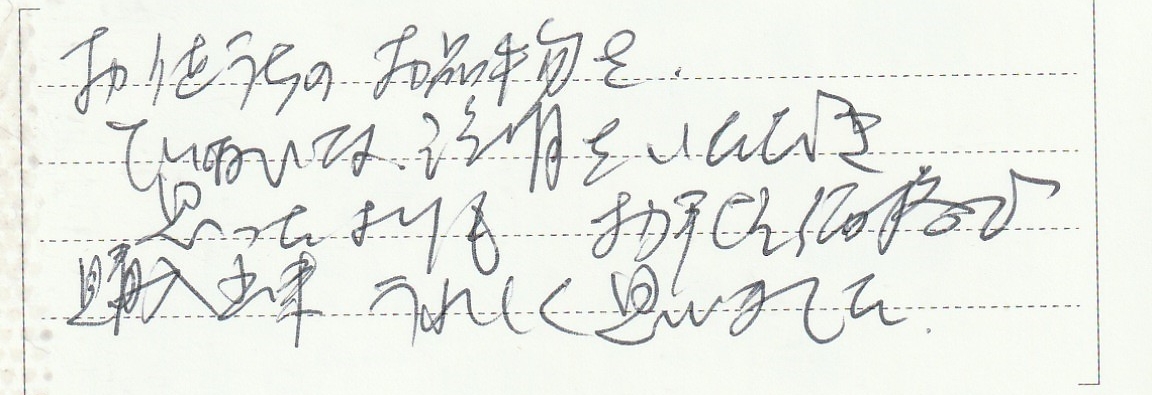 お仏だんの お品物を.
ていねいな、説明をいただき
思ったよりも お早く価格で
購入出来 うれしく思いました.